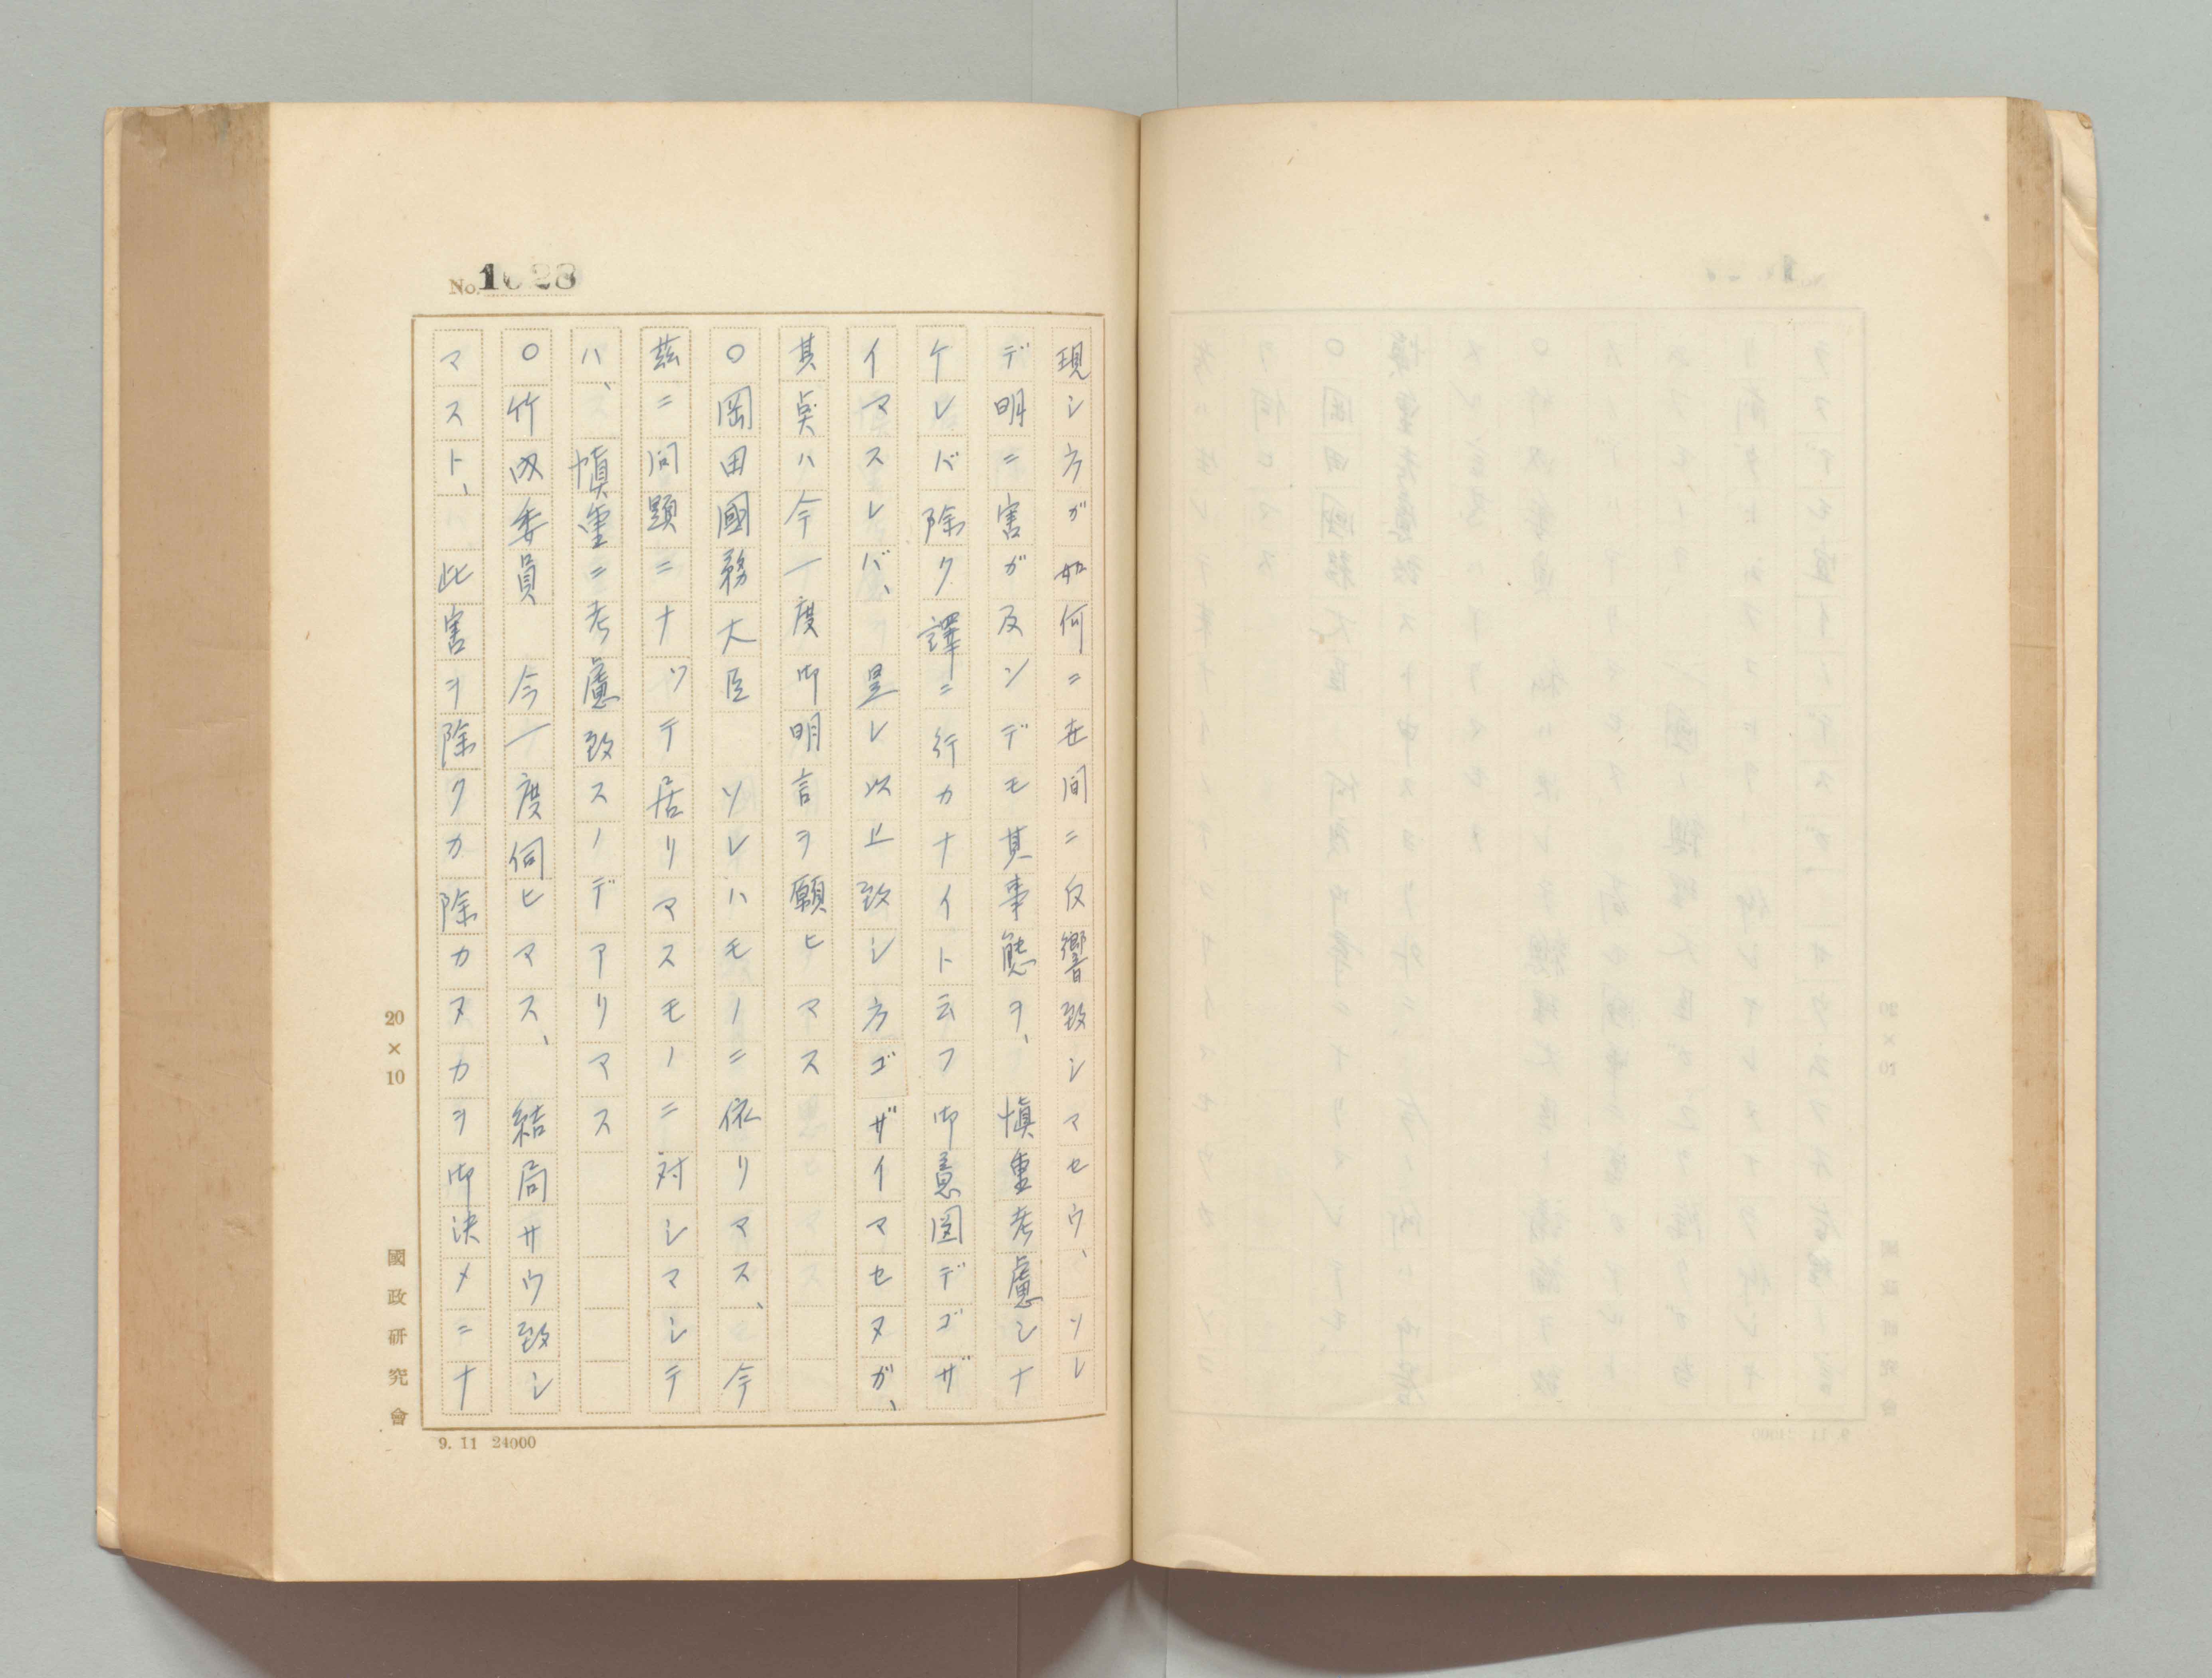 No. 1028
現シ方ガ如何ニ世間ニ反響致シマセウ、ソレ
デ明ニ害ガ及ンデモ其事態ヲ、愼重考慮シナ
ケレバ除ク譯ニ行カナイト云フ御意図デゴザ
イマスレバ、是レ以上致シ方ゴザイマセヌガ、
其奌ハ今一度御明言ヲ願ヒマス
○岡田國務大臣　ソレハモノニ依リマス、今
茲ニ問題ニナツテ居リマスモノニ対シマシテ
ハ、愼重ニ考慮致スノデアリマス
○竹内委員　今一度伺ヒマス、結局サウ致シ
マスト、此害ヲ除クカ除カヌカヲ御決メニナ
20×10
國政研究會
9. 11 24000